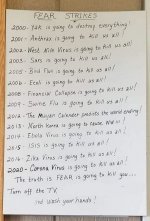 FEAR STRIKES
2000 - Y2K is going to destroy everything!
2001 - Anthrax is going to kill us all!
2002 - West Nile Virus is going to kill us all!
2003 - Sars is going to kill us all!
2005 - Bird Flu is going to kill us all!
2006 - Ecoli is going to kill us all!
2008 - Financial Collapse is going to kill us all!
2009 - Swine Flu is going to kill us all!
2012 - The Mayan Calendar predicts the world ending!
2013 - North Korea is going to cause WW III!
2014 - Ebola Virus is going to kill us all!
2015 - ISIS is going to kill us all!
2016 - Zika Virus is going to kill us all!
2020 - Corona Virus is going to kill us all!
The truth is FEAR is going to kill you...
Turn off the TV
and wash your hands!